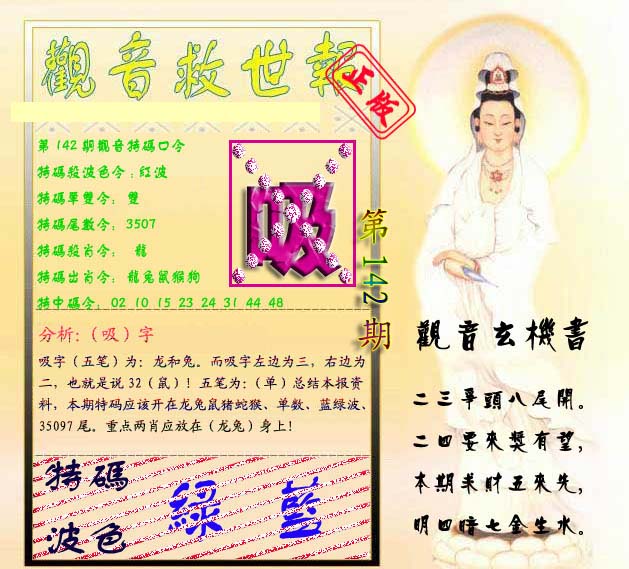 觀音救世報
正版
第142期觀音特碼口令
特碼殺波色令:紅波
特碼單雙令: 雙
特碼尾數令: 3507
特碼殺肖令: 龍
特碼出肖令: 龍兔鼠猴狗
特中碼令: 02 10 15 23 24 31 44 48
吸
第142期
分析:（吸）字
吸字（五笔）为：龙和兔。而吸字左边为三，右边为
二，也就是说 32（鼠）！五笔为：（单）总结本报资
料，本期特码应该开在龙兔鼠猪蛇猴、单数、蓝绿波、
35097 尾。重点两肖应放在（龙兔）身上！
特碼
波色
綠 藍
觀音玄機書
二三爭頭八尾開。
二四要來獎有望，
本期求財五來先，
明四暗七金生水。